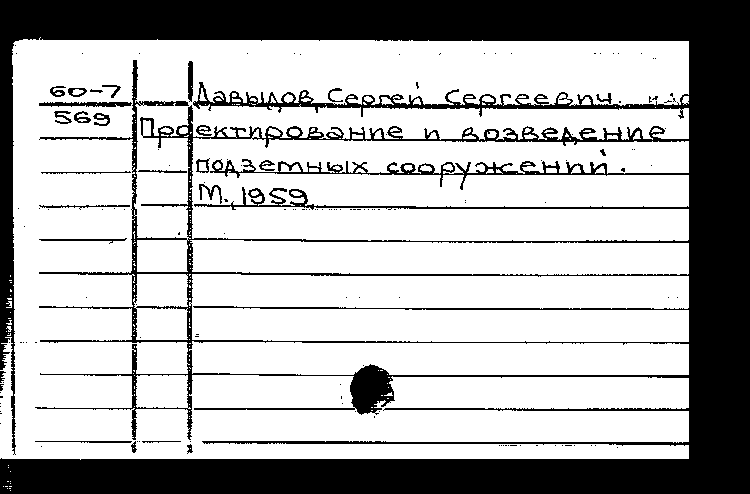 60-7 Давыдов, Сергей Сергеевич. и др
569 Проектирование и возведение
подземных сооружений.
М., 1959